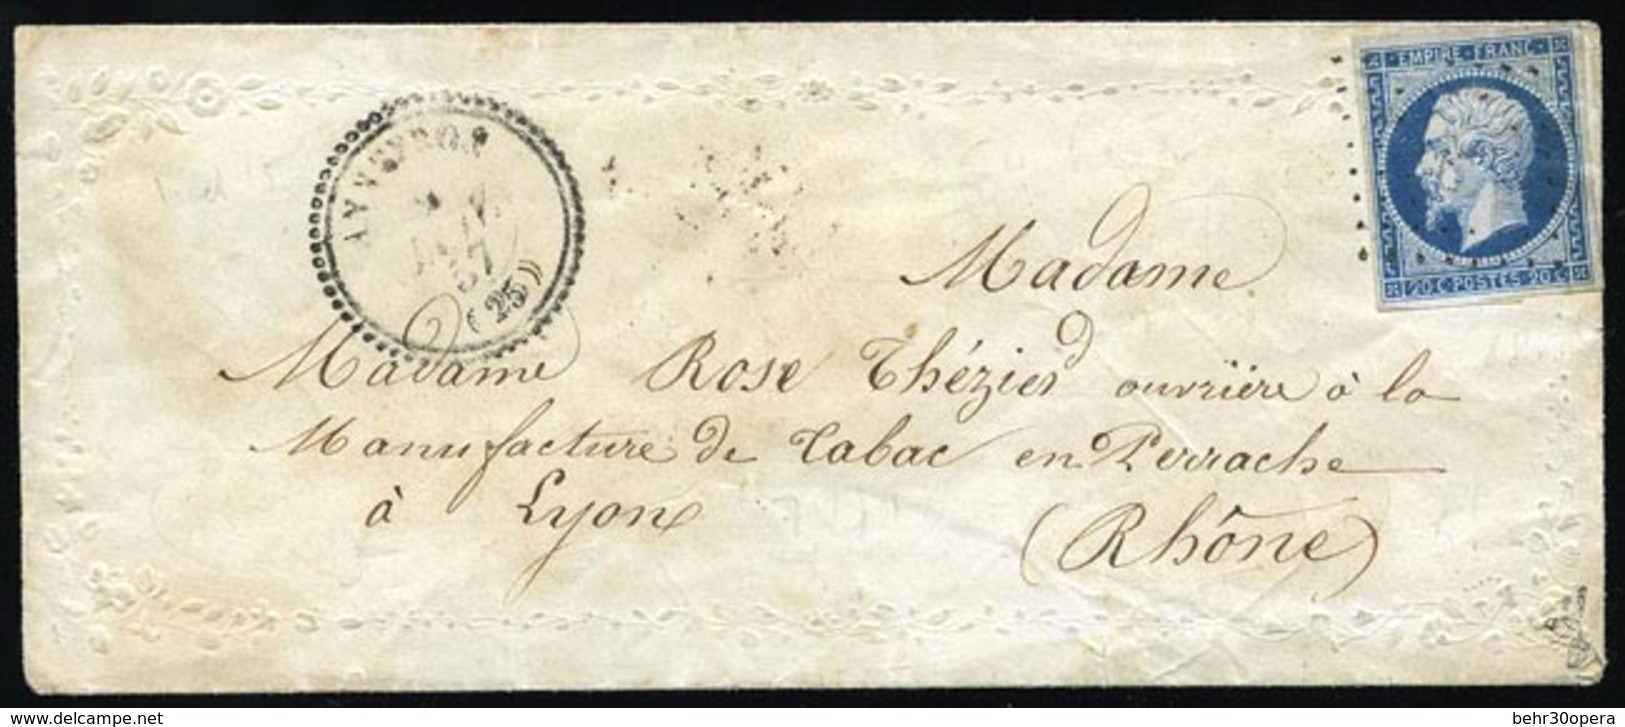 EMPIRE FRANC
20 C POSTES 20 C
57
(25)
Madame
Madame Rose Thézier ouvrière à la
Manufacture de Tabac en Perrache
à Lyon (Rhône)
www.delcampe.net
behr30opera